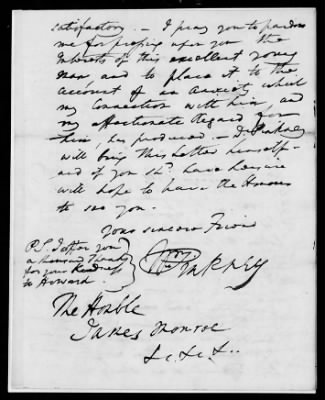 satisfactory. — I pray you to pardon
me for pressing upon you the
Interests of this excellent young
Man, and to place it to the
account of an Anxiety which
my Connection with him, and
my affectionate Regard for
him, has produced. — Dr. Pinkney
will bring this Letter himself —
and if you shd. have Leisure
will hope to have the Honour
to see you.
Your sincere Friend
Wm Pinkney
P.S. I offer you
a thousand Thanks
for your Kindness
to Howard.
The Honble
James Monroe
&c &c &c.